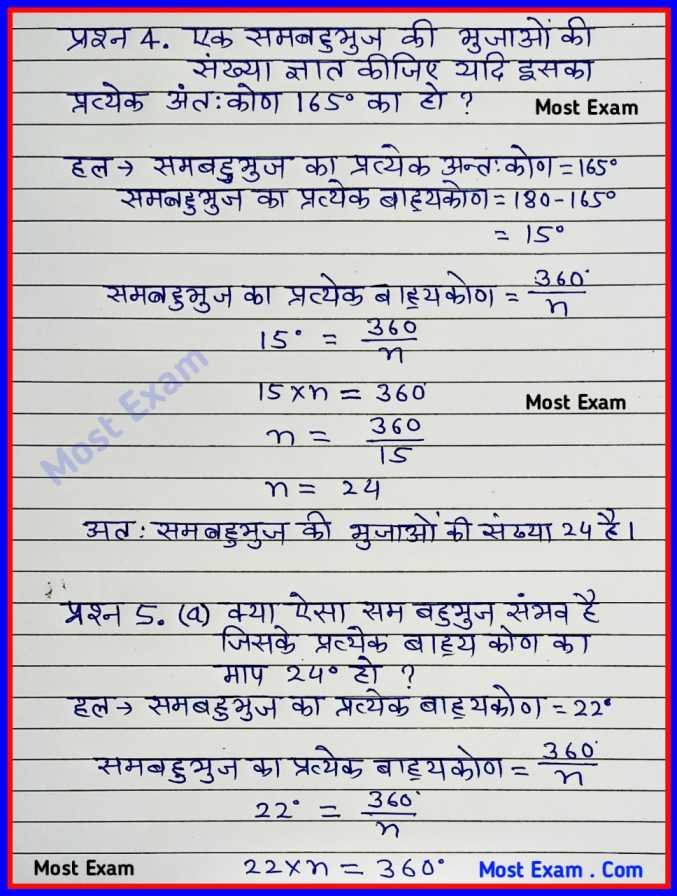 प्रश्न 4. एक समबहुभुज की भुजाओं की
संख्या ज्ञात कीजिए यदि इसका
प्रत्येक अंतःकोण 165° का हो ?
Most Exam
हल → समबहुभुज का प्रत्येक अन्तःकोण = 165°
समबहुभुज का प्रत्येक बाह्यकोण = 180-165°
= 15°
समबहुभुज का प्रत्येक बाह्यकोण = 360°/n
15° = 360/n
15 × n = 360°
Most Exam
n = 360/15
Most Exam
n = 24
अतः समबहुभुज की भुजाओं की संख्या 24 है।
प्रश्न 5. (a) क्या ऐसा सम बहुभुज संभव है
जिसके प्रत्येक बाह्य कोण का
माप 24° हो ?
हल → समबहुभुज का प्रत्येक बाह्यकोण = 22°
समबहुभुज का प्रत्येक बाह्यकोण = 360°/n
22° = 360°/n
Most Exam
22 × n = 360°
Most Exam . Com